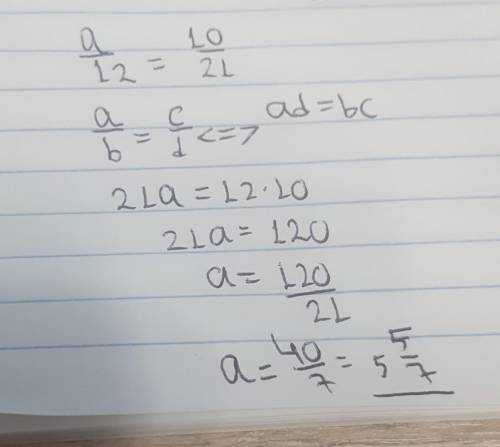 a/12 = 10/21
a/b = c/d <=> ad=bc
21a = 12·10
21a = 120
a = 120/21
a = 40/7 = 5 5/7